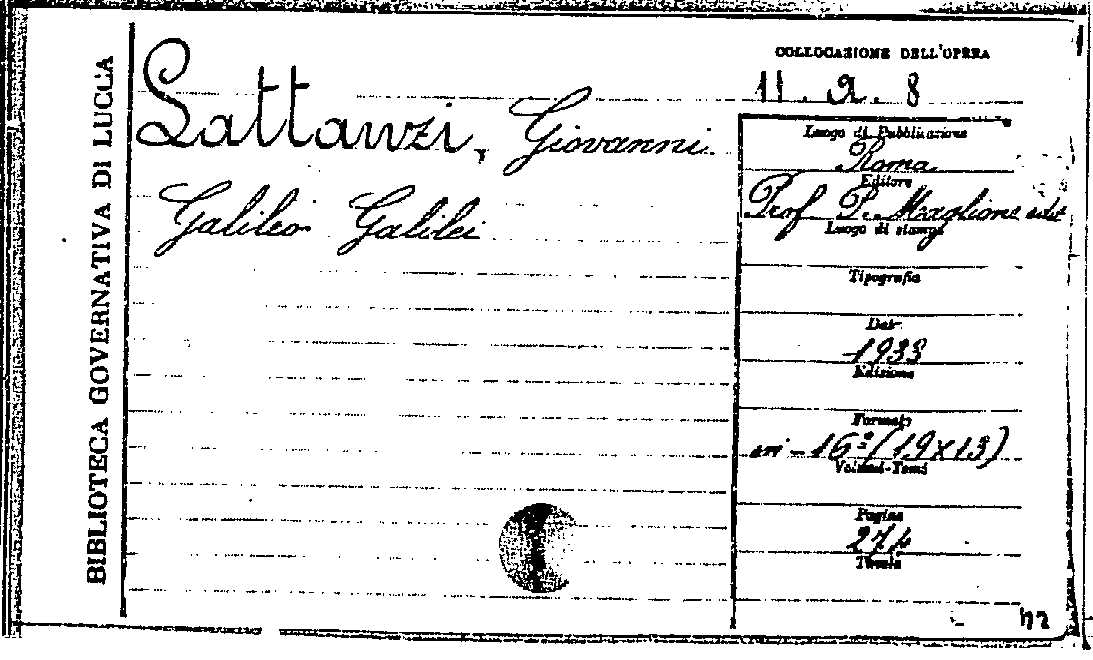 BIBLIOTECA GOVERNATIVA DI LUCCA
Lattanzi, Giovanni
Galileo Galilei
COLLOCAZIONE DELL'OPERA
11.2.8
Luogo di Pubblicazione
Roma
Editore
Prof. P. Maglione edit
Luogo di stampa
Tipografia
Data
1933
Edizione
Formato
in-16º (19x13)
Volumi-Tomi
Pagine
274
Tavole